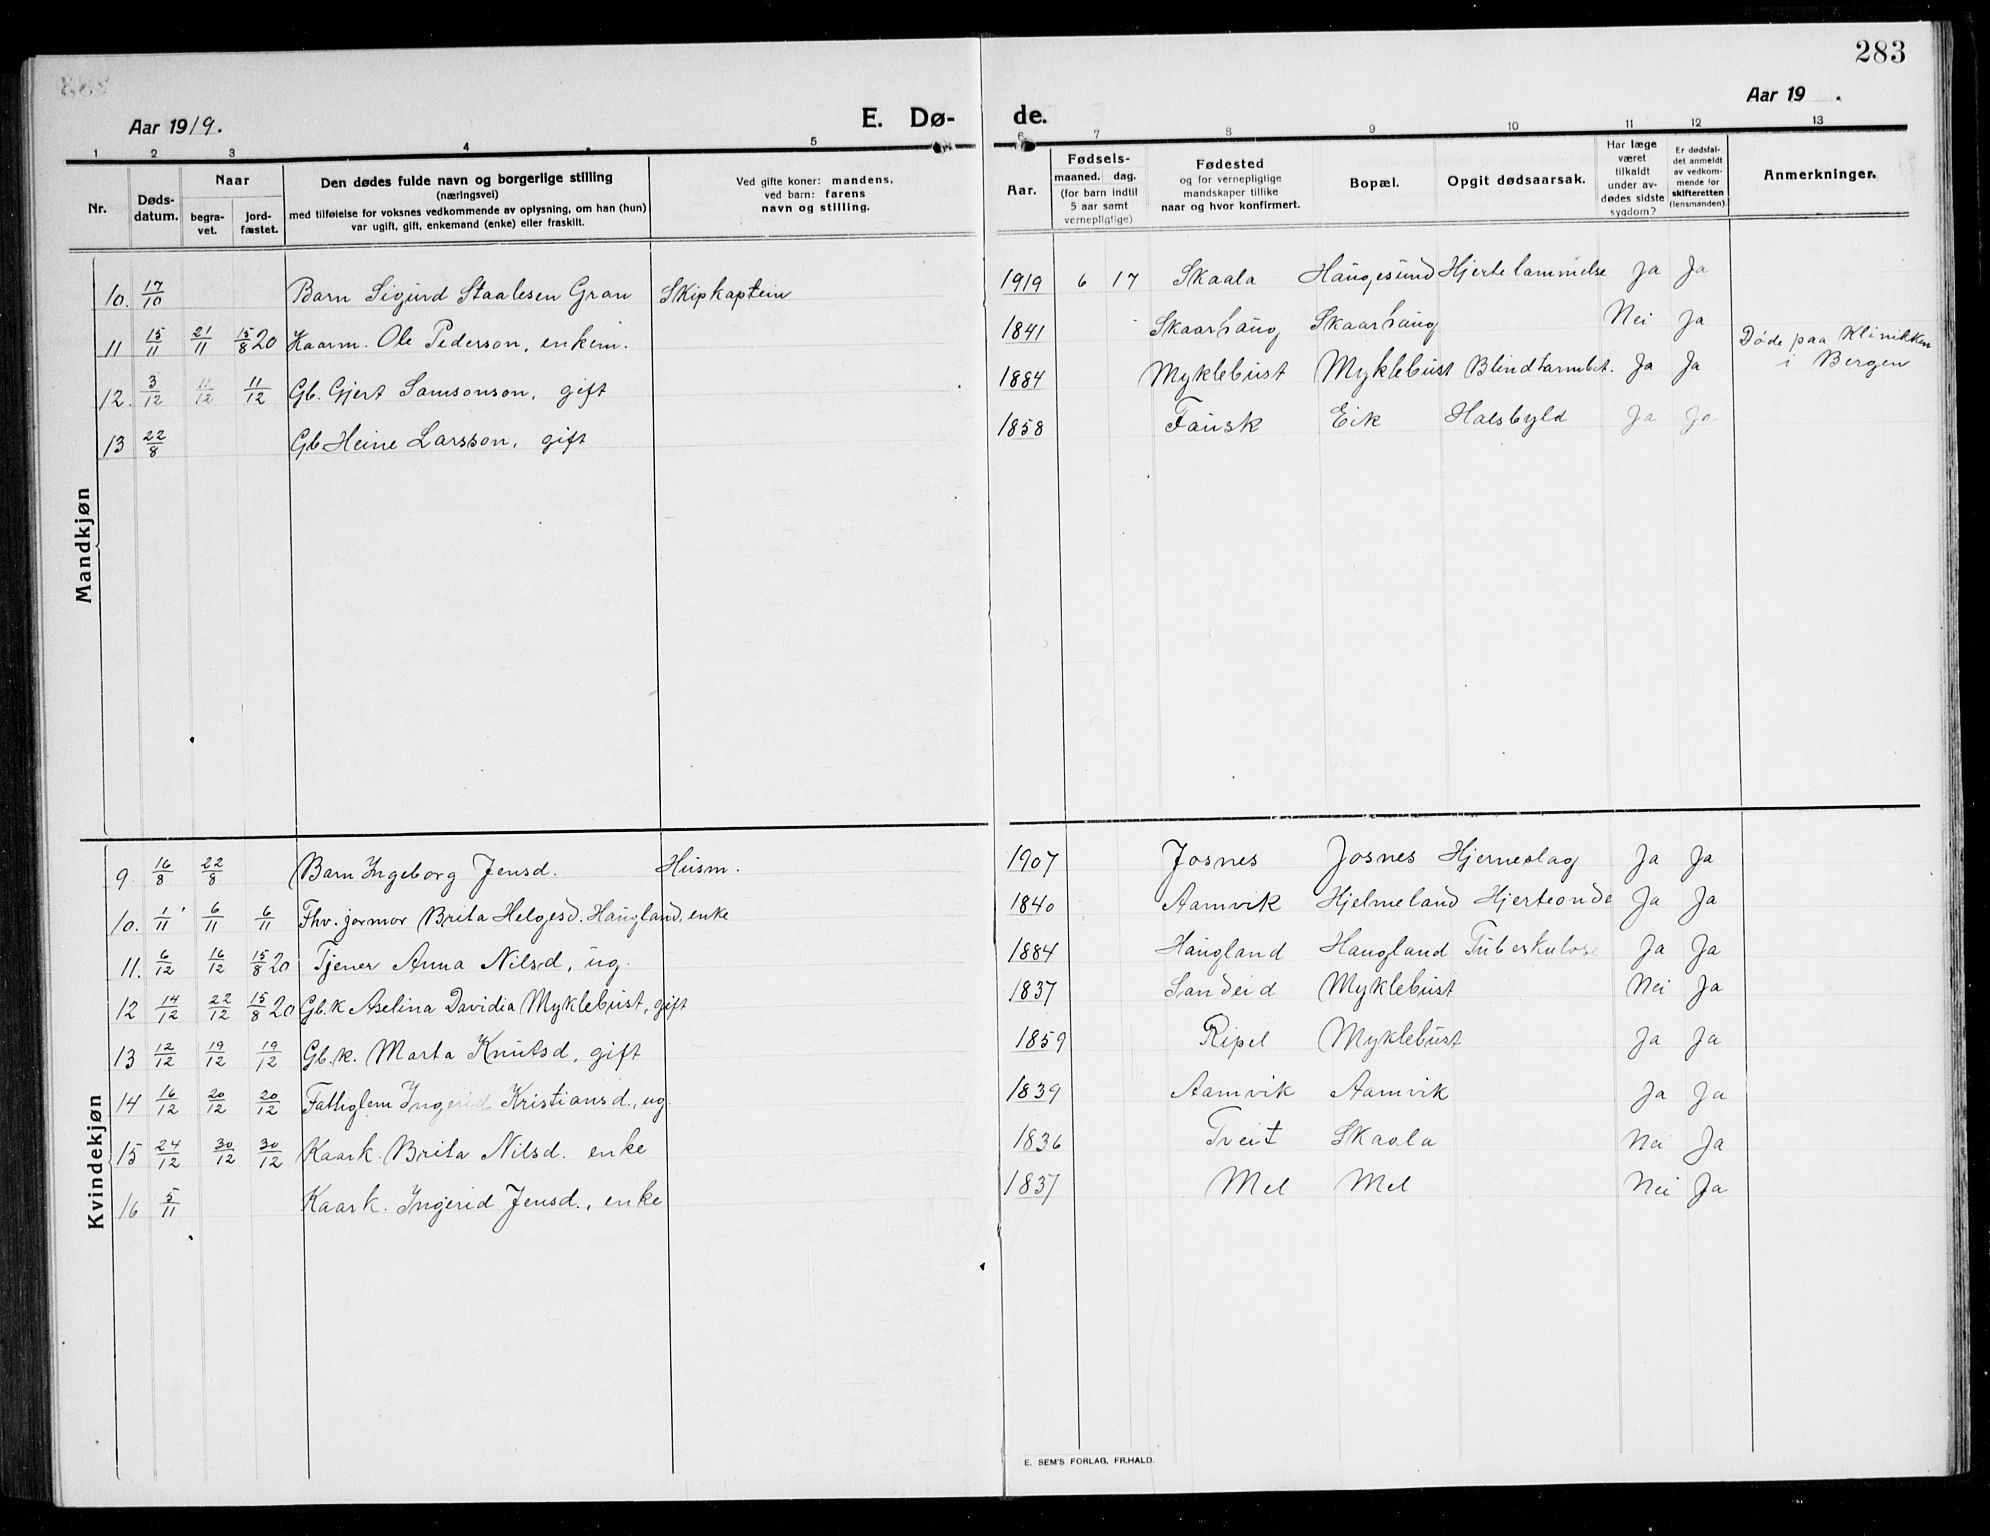 283
Aar 1919.
E. Dø-
de.
Aar 19 .
1 2 3 4 5 6 7 8 9 10 11 12 13
Nr.
Døds-
datum.
Naar
begra-
vet.
jord-
fæstet.
Den dødes fulde navn og borgerlige stilling
(næringsvei)
med tilføielse for voksnes vedkommende av oplysning, om han (hun)
var ugift, gift, enkemand (enke) eller fraskilt.
Ved gifte koner: mandens,
ved barn: farens
navn og stilling.
Aar.
Fødsels-
maaned. dag.
(for barn indtil
5 aar samt
vernepligtige)
Fødested
og for vernepligtige
mandskaper tillike
naar og hvor konfirmert.
Bopæl.
Opgit dødsaarsak.
Har læge
været
tilkaldt
under av-
dødes sidste
sygdom?
Er dødsfal-
det anmeldt
av vedkom-
mende for
skifteretten
(lensmanden).
Anmerkninger.
Mandkjøn
10. 17/10 Barn Sigurd Staalesen Gran Skipkaptein 1919 6 17 Skaala Haugesund Hjertelammelse Ja Ja
11 15/11 21/11 15/8 20 Kaarm. Ole Pederson, enkem. 1841 Skaarhaug Skaarhaug Nei Ja
12. 3/12 11/12 11/12 Gb. Gjert Samsonson, gift 1884 Myklebust Myklebust Blindtarmbet. Ja Ja Døde paa Klinikken
i Bergen
13 22/8 Gb Heine Larsson, gift 1858 Fausk Eik Halsbyld Ja Ja
Kvindekjøn
9 16/8 22/8 Barn Ingeborg Jensd. Husm. 1907 Josnes Josnes Hjerneslag Ja Ja
10. 1/11 6/11 6/11 Fhv. jormor Brita Helgesd. Haugland, enke 1840 Aamvik Hjelmeland Hjerteonde Ja Ja
11. 6/12 16/12 15/8 20 Tjener Anna Nilsd, ug. 1884 Haugland Haugland Tuberkulose Ja Ja
12 14/12 22/12 15/8 20 Gb.k Aselina Davidia Myklebust, gift 1837 Sandeid Myklebust Nei Ja
13 12/12 19/12 19/12 Gb.k. Marta Knutsd, gift 1859 Ripel Myklebust Ja Ja
14 16/12 20/12 20/12 Fattiglem Ingerid Kristiansd., ug. 1839 Aamvik Aamvik Ja Ja
15 24/12 30/12 30/12 Kaark. Brita Nilsd. enke 1836 Tveit Skaala Nei Ja
16 5/11 Kaark. Ingerid Jensd., enke 1837 Mel Mel Nei Ja
E. SEM'S FORLAG, FR.HALD.